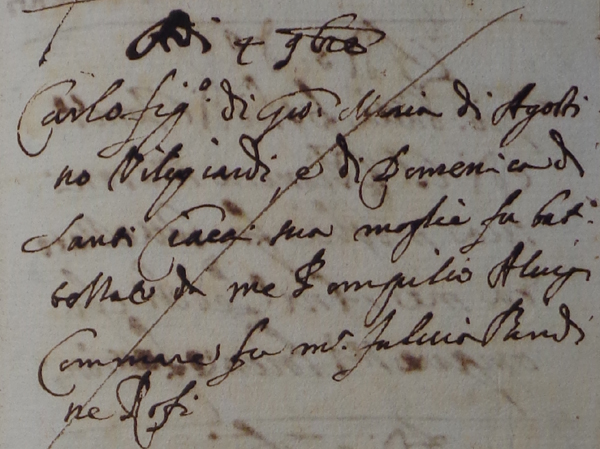 Adi 4 9bre
Carlo fig.º di Gio: Maria di Agosti
no Viligiardi, e di Domenica di
Santi Ciacci sua moglie fu bat:
tezzato da me Pompilio Aluigi
Commare fu m.ª Fulvia Pandi
ne Rosi